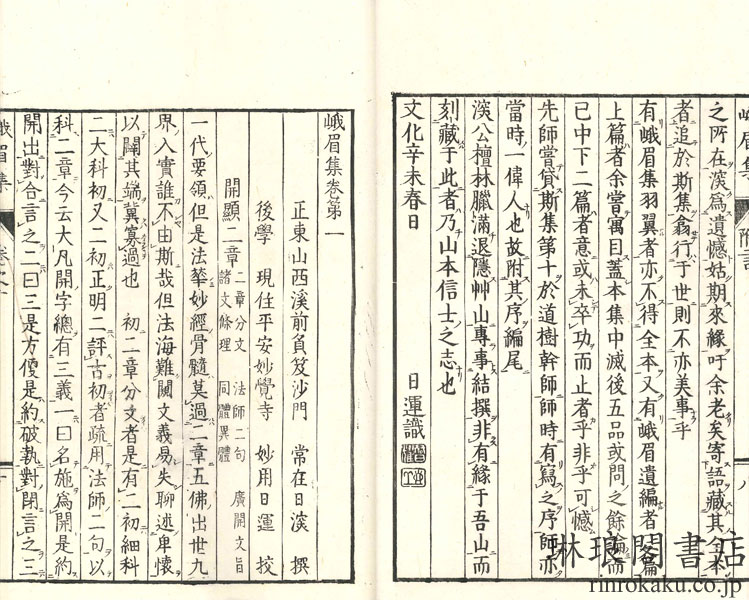 峨眉集 附言
之所在深爲遺憾姑期來緣吁余老矣寄語藏其全本
者追於斯集翕行于世則不亦美事乎
有峨眉集羽翼者亦不得全本又有峨眉遺編者一篇
上篇者余嘗寓目蓋本集中滅後五品或問之餘論而
已中下二篇者意或未卒功而止者乎非乎可憾
先師嘗貸斯集第十於道樹幹師師時有寫之序師亦
當時一偉人也故附其序編尾
深公檀林臘滿退隱艸山專事結撰非有緣于吾山而
刻藏于此者乃山本信士之志也
文化辛未春日
日運識
八
峨眉集卷第一
正東山西溪前負笈沙門 常在日深 撰
後學 現住平安妙覺寺 妙用日運 校
開顯二章
二章分文 法師二句 廣開文旨
諸文條理 同體異體
一代要領但是法華妙經骨髓莫過二章五佛出世九
界入實誰不由斯哉但法海難閱文義易失聊述卑懷
以闢其端冀寡過也 初二章分文者是有二初細科
二大科初又二初正明二評古初者疏用法師二句以
科二章今云大凡開字總有三義一曰名施爲開是約
開出對合言之二曰三是方便是約破執對閉言之三
峨眉集
琳琅閣書店
rinrokaku.co.jp